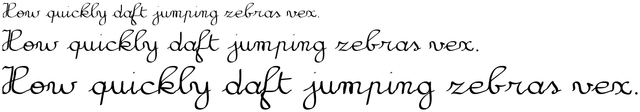 How quickly daft jumping zebras vex.
How quickly daft jumping zebras vex.
How quickly daft jumping zebras vex.